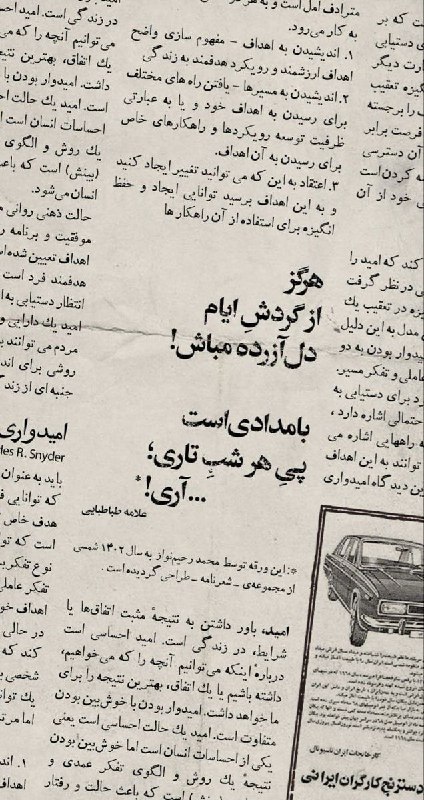 ت که بر
ی دستیابی
ارت دیگر
گیزه تعقیب
ف را برجسته
فرست برابر
آن دسترسی
ه کردن است
ی خود از آن
کند که امید را
ی در نظر گرفت
یزه در تعقیب یك
مدل به این دلیل
یدوار بودن به دو
عاملی و تفکر مسیر
رد برای دستیابی به
حتمالی اشاره دارد ،
ه راههایی اشاره می
توانند به این اهداف
ین دیدگاه امیدواری
کارخانجات ایران ناسیونال
دسترنج کارگران ایرانی
مترادف امل است و به هر
به کار می‌رود.
۱. اندیشیدن به اهداف – مفهوم سازی واضح
اهداف ارزشمند و رویکرد هدفمند به زندگی
۲. اندیشیدن به مسیرها – یافتن راه های مختلف
برای رسیدن به اهداف خود و یا به عبارتی
ظرفیت توسعه رویکردها و راهکارهای خاص
برای رسیدن به آن اهداف.
۳. اعتقاد به این که می توانید تغییر ایجاد کنید
و به این اهداف برسید توانایی ایجاد و حفظ
انگیزه برای استفاده از آن راهکارها
هرگز
از گردشِ ایام
دل‌آزرده مباش!
بامدادی است
پیِ هر شبِ تاری؛
...آری!*
علامه طباطبایی
*: این ورقه توسط محمد رحیم‌نواز به سال ۱۳۰۲ شمسی
از مجموعه‌ی – شعرنامه – طراحی گردیده است .
امید، باور داشتن به نتیجهٔ مثبت اتفاق‌ها یا
شرایط، در زندگی است. امید احساسی است
دربارهٔ اینکه می‌توانیم آنچه را که می‌خواهیم،
داشته باشیم یا یك اتفاق، بهترین نتیجه را برای
ما خواهد داشت. امیدوار بودن با خوش‌بین بودن
متفاوت است. امید یك حالت احساسی است یعنی
یکی از احساسات انسان است اما خوش‌بین بودن
نتیجهٔ یك روش و الگوی تفکر عمدی و
است که باعث حالت و رفتار
در زندگی است. امید احسا
می‌توانیم آنچه را که می‌
یك اتفاق، بهترین نتیج
داشت. امیدوار بودن با
است. امید یك حالت ا
احساسات انسان است ا
یك روش و الگوی ت
(بینش) است که باعث
انسان می‌شود.
حالت ذهنی روانی م
موفقیت و برنامه ر
اهداف تعیین شده است
هدفمند فرد است
انتظار دستیابی به ا
امید یك دارایی و
مردم می توانند ب
روشی برای اند
جنبه ای از زندگی
امیدواری
les R. Snyder
باید به عنوان
که توانایی ف
هدف خاص
است که توا
نوع تفکر ب
تفکر عاملی
اهداف خو
در حالی
کند که
شخصی ب
یك توانا
اما مرتبـ
۱. اند
اهداف